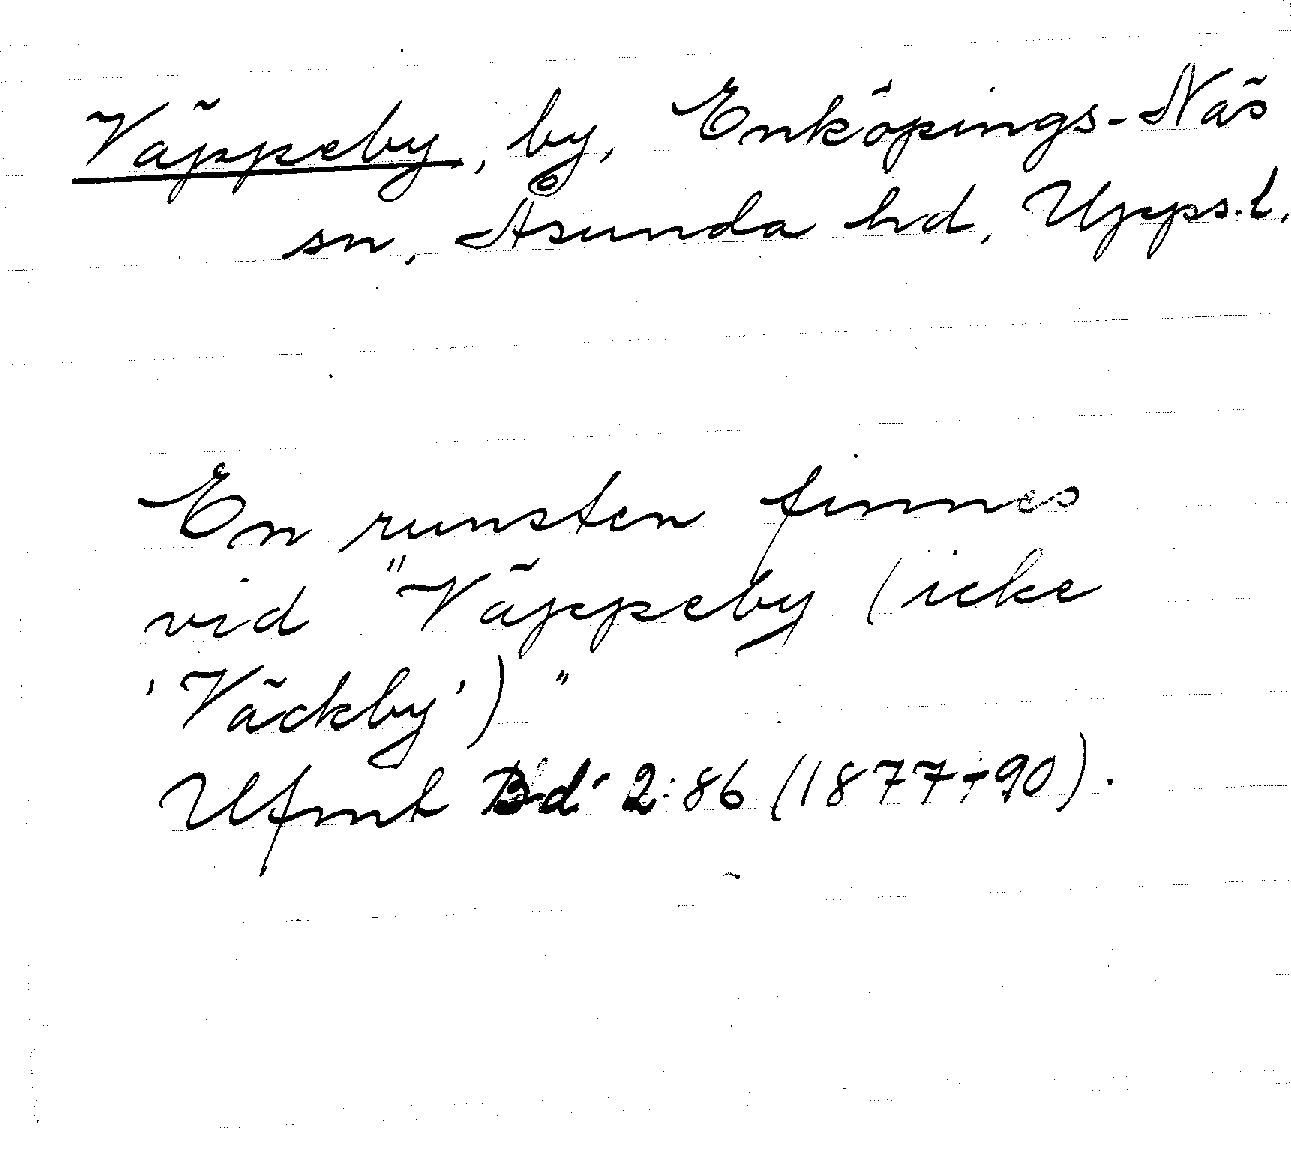 Väppeby, by, Enköpings-Näs
sn, Åsunda hd, Upps. l.
En runsten finnes
vid "Väppeby (icke
'Väckby')"
Ufmt Bd 2:86 (1877-90).